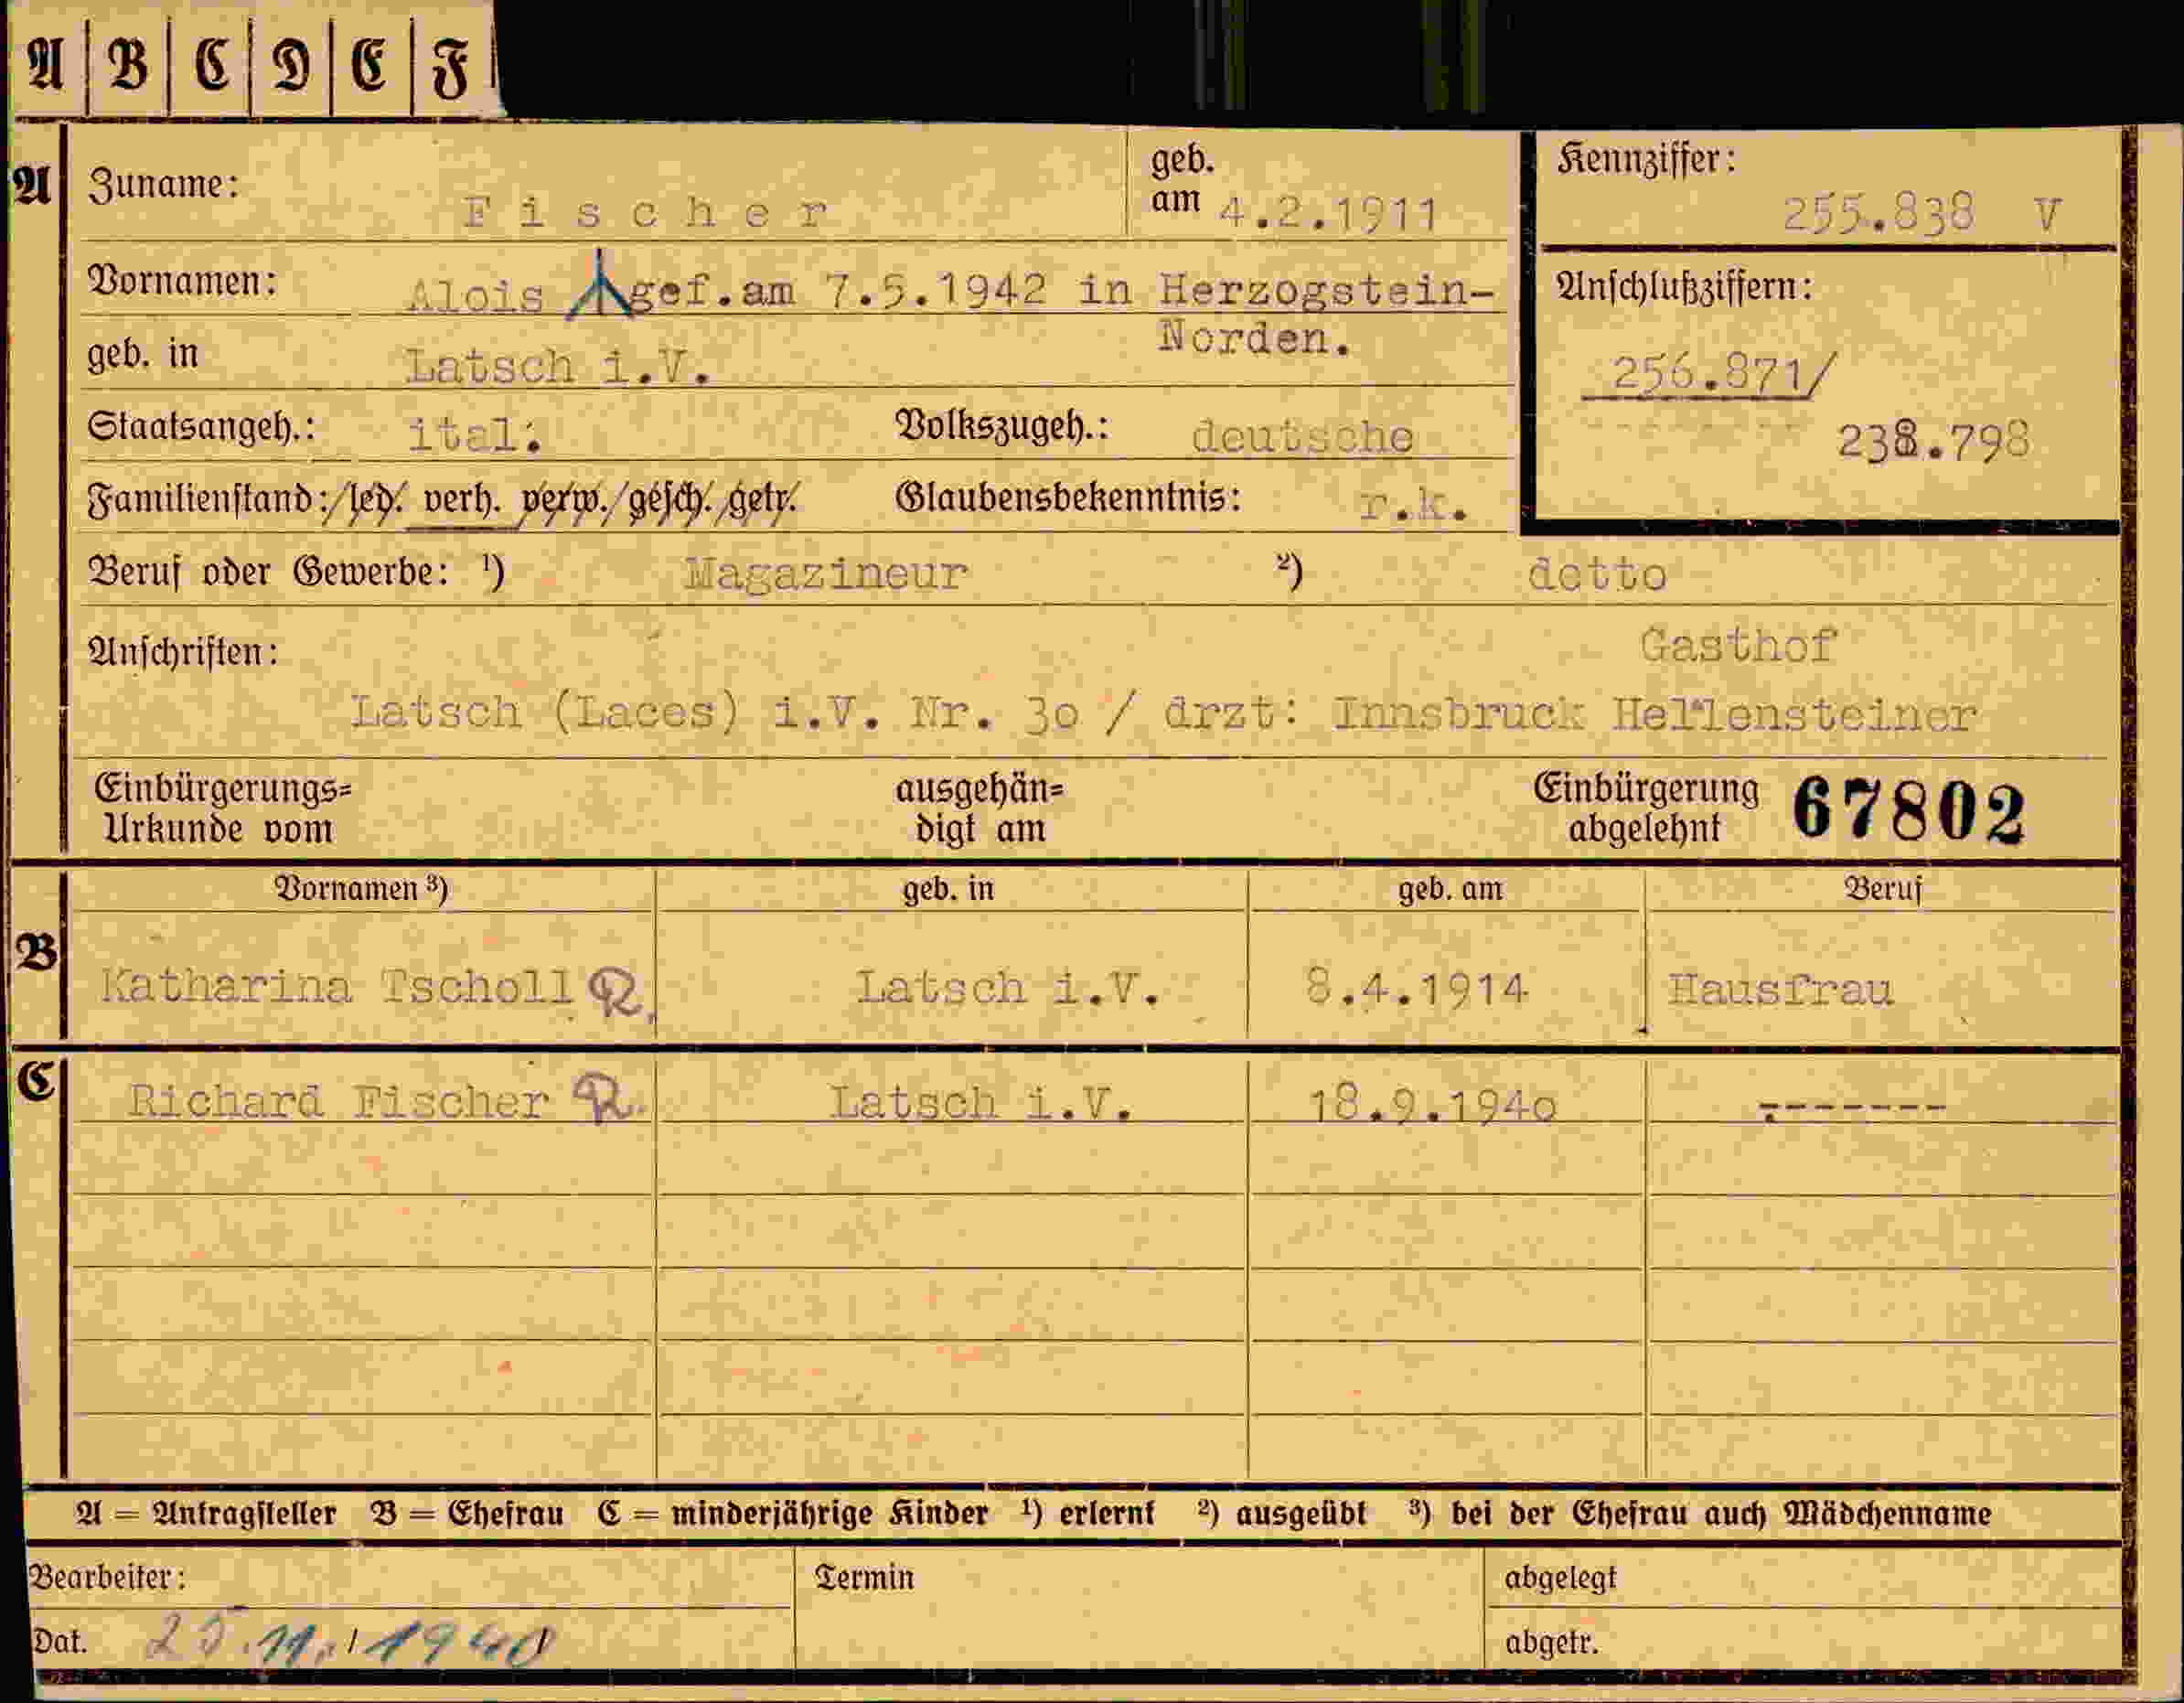 A B C D E F
A Zuname: Fischer geb. am 4.2.1911
Kennziffer: 255.838 V
Vornamen: Alois gef.am 7.5.1942 in Herzogstein-
Norden.
Anschlußziffern:
256.871/
238.798
geb. in Latsch i.V.
Staatsangeh.: ital: Volkszugeh.: deutsche
Familienstand: led. verh. verw. gesch. getr. Glaubensbekenntnis: r.k.
Beruf oder Gewerbe: ¹) Magazineur ²) detto
Anschriften: Gasthof
Latsch (Laces) i.V. Nr. 30 / drzt: Innsbruck Hellensteiner
Einbürgerungs= Urkunde vom ausgehän= digt am Einbürgerung abgelehnt 67802
Vornamen ³) geb. in geb. am Beruf
B Katharina Tscholl R. Latsch i.V. 8.4.1914 Hausfrau
C Richard Fischer R. Latsch i.V. 18.9.1940 -------
A = Antragsteller B = Ehefrau C = minderjährige Kinder ¹) erlernt ²) ausgeübt ³) bei der Ehefrau auch Mädchenname
Bearbeiter: Termin abgelegt
Dat. 25.11.1940 abgetr.